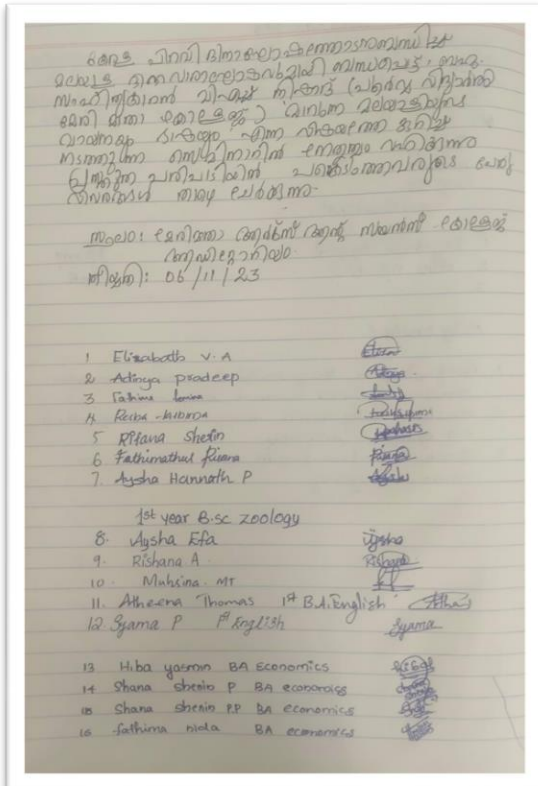 കേരള പിറവി ദിനാഘോഷത്തോടനുബന്ധിച്ച്
മലയാള ഭാഷാ വാരാഘോഷവുമായി ബന്ധപ്പെട്ട്
സാഹിത്യകാരൻ (പൂർവ്വ വിദ്യാർത്ഥി
കോളേജ്) മലയാളിയുടെ
വായനയും ഭാഷയും എന്ന വിഷയത്തെ കുറിച്ച്
നടത്തുന്ന സെമിനാറിന് നേതൃത്വം വഹിക്കുന്നു
പ്രസ്തുത പരിപാടിയിൽ പങ്കെടുത്തവരുടെ പേരു
വിവരങ്ങൾ താഴെ ചേർക്കുന്നു.
സ്ഥലം: ആർട്സ് ആന്റ് സയൻസ് കോളേജ്
ഓഡിറ്റോറിയം
തിയ്യതി: 06/11/23
1 Elizabath V.A
2 Adinya pradeep
3 Fathima
4
5 Rifana Sherin
6 Fathimathul Rinana
7. Aysha Hannath P
1st year B.sc zoology
8. Aysha Efa Aysha
9. Rishana A. Rishana
10. Muhsina. MT
11. Atheena Thomas 1st B.A. English
12. Syama P 1st English Syama
13 Hiba yasmin BA Economics
14 Shana sherin P BA economics
15 Shana sherin P.P BA economics
16 fathima nida BA economics